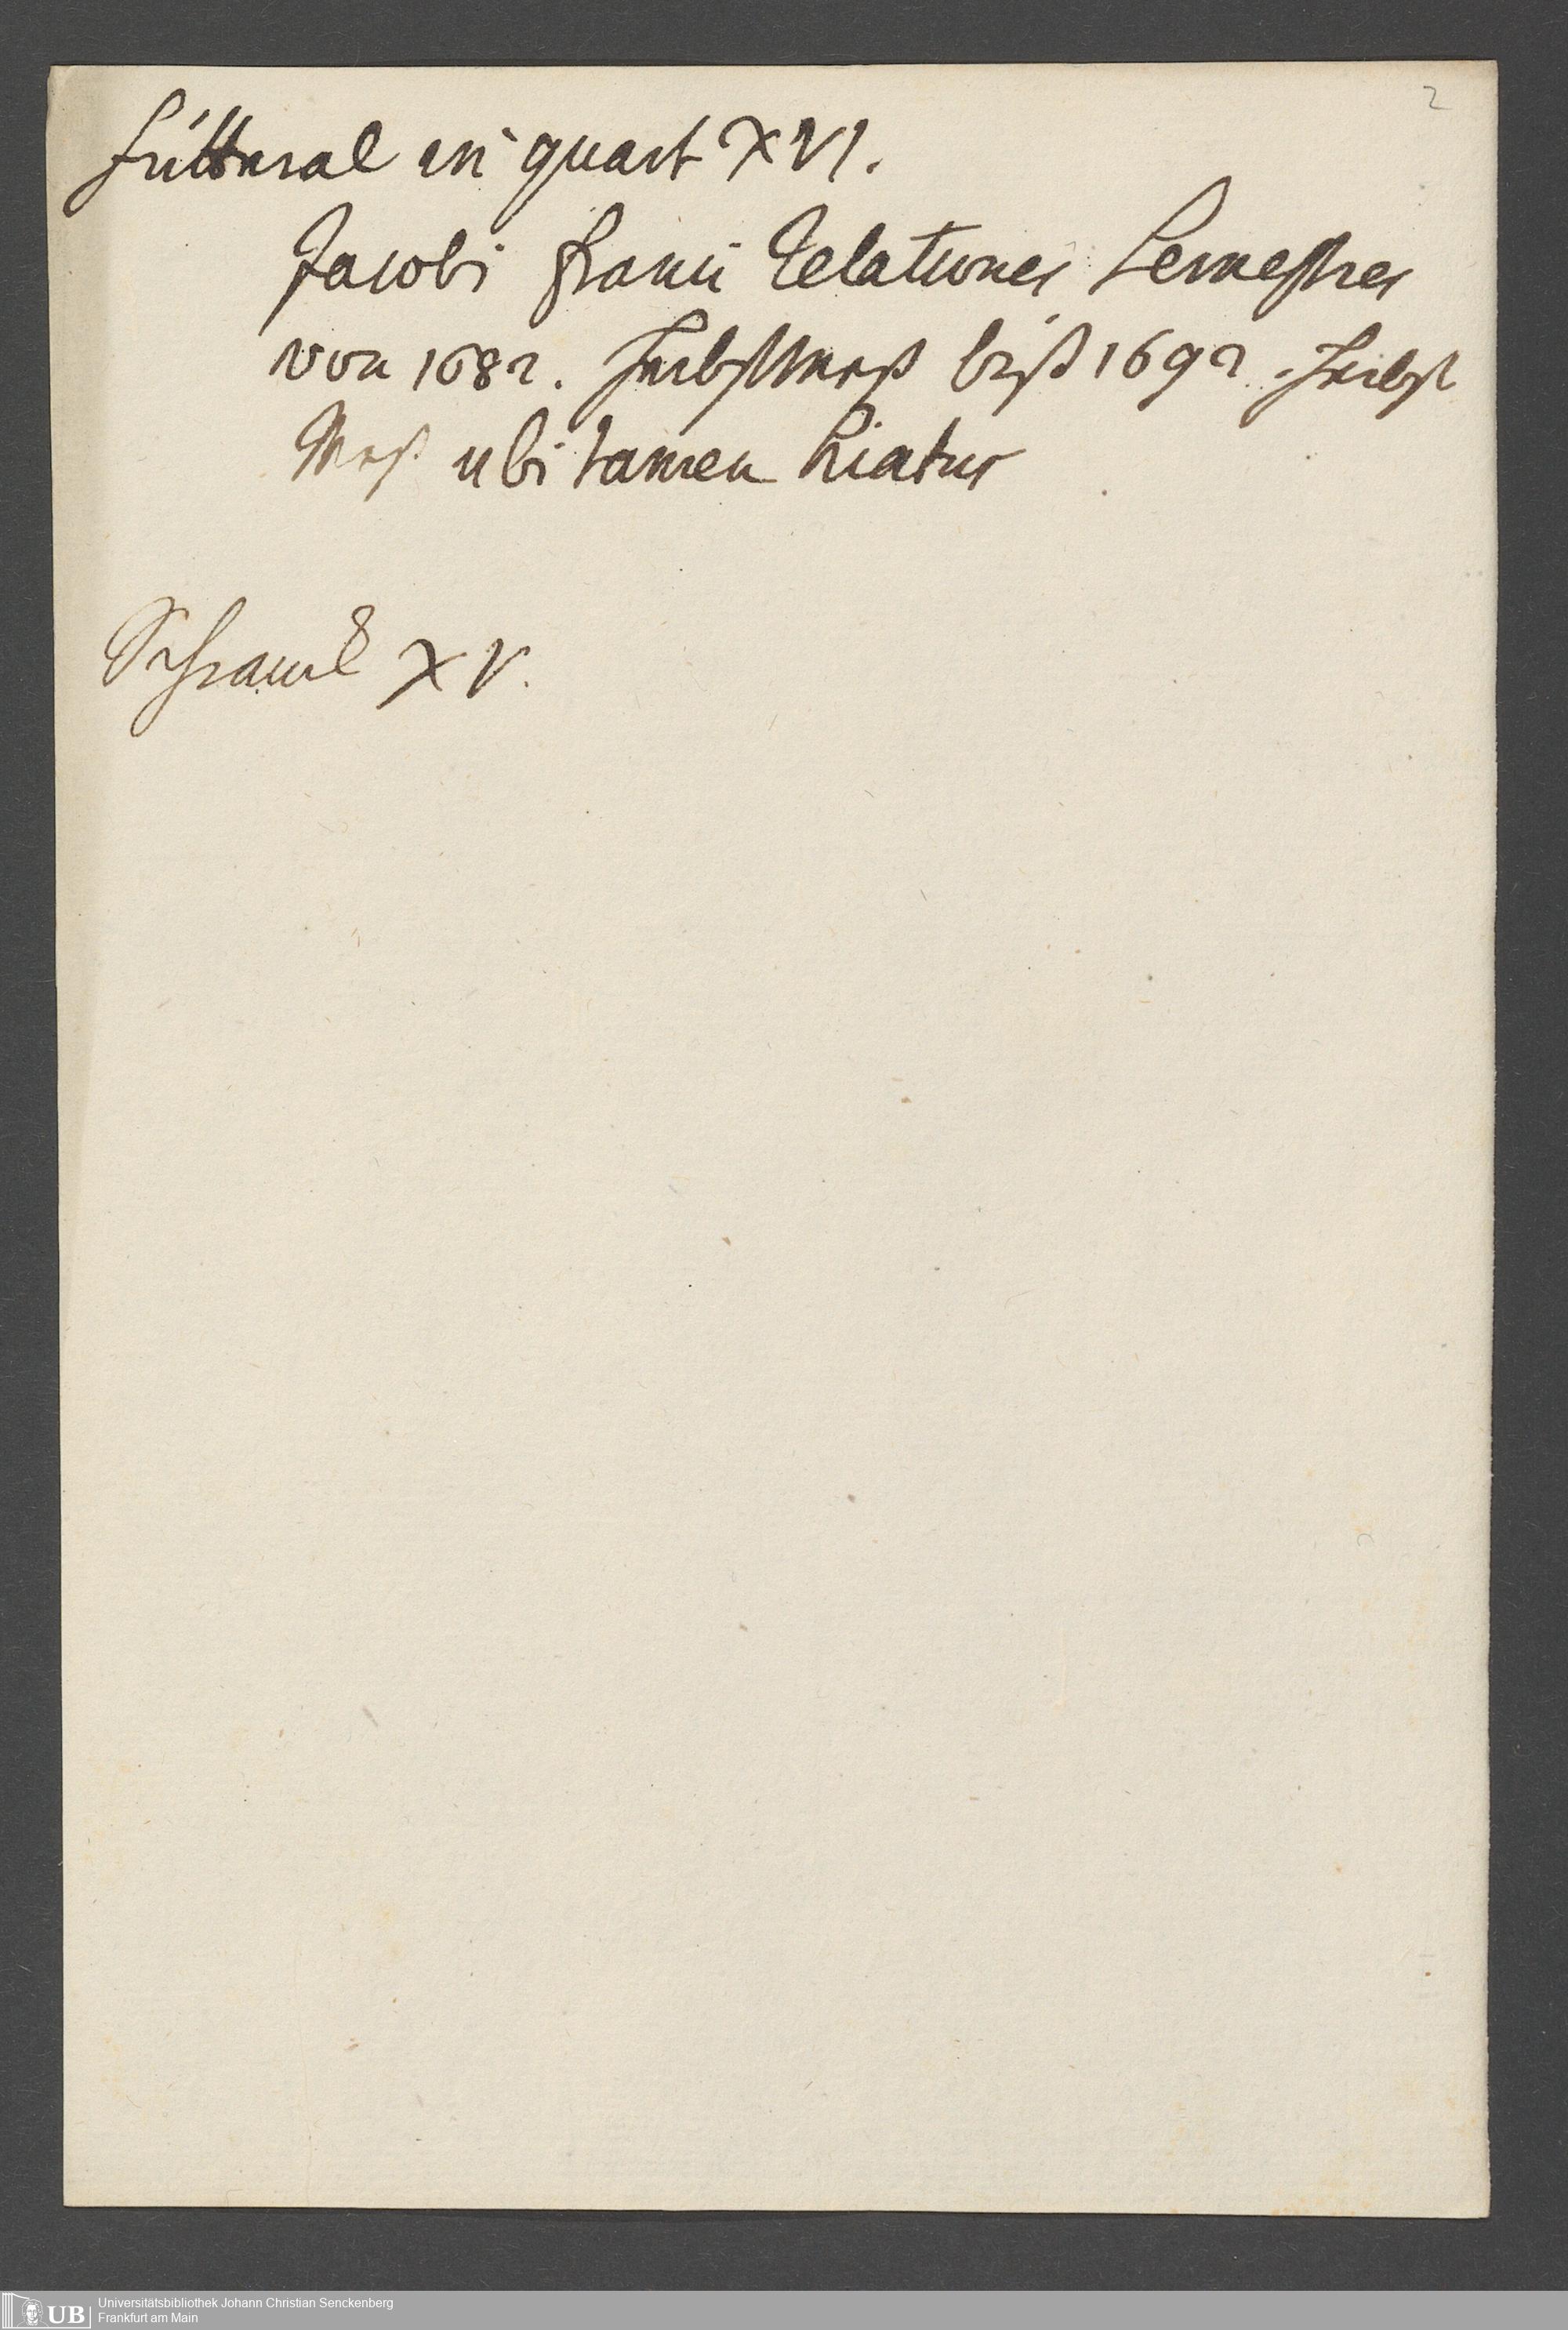 2
Futteral in quart XVI.
Jacobi Franci Relationes Semestres
von 1682. Herbstmeß biß 1692. Herbst
Meß ubi tamen hiatus
Schranck XV.
UB Universitätsbibliothek Johann Christian Senckenberg
Frankfurt am Main